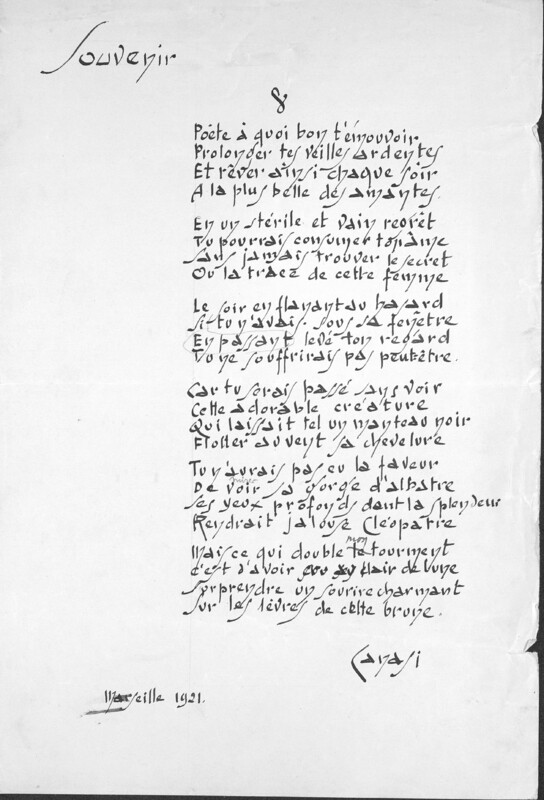 Souvenir
Poète à quoi bon t'émouvoir
Prolonger tes veilles ardentes
Et rêver ainsi chaque soir
A la plus belle des amantes.
En un stérile et vain regrêt
Tu pourrais consumer ton âme
Sans jamais trouver le secret
Ou la trace de cette femme
Le soir en flanant au hasard
Si tu n'avais sous sa fenêtre
En passant levé ton regard
Tu ne souffrirais pas peutêtre.
Car tu serais passé sans voir
Cette adorable créature
Qui laissait tel un manteau noir
Flotter au vent sa chevelure
Tu n'aurais pas eu la faveur
De voir sa gorge d'albatre
Ses yeux profonds dont la splendeur
Rendrait jalouse Cléopatre
Mais ce qui double te mon tourment
C'est d'avoir au clair de lune
Surprendre un sourire charmant
Sur les lèvres de cette brune.
Canasi
Marseille 1921.